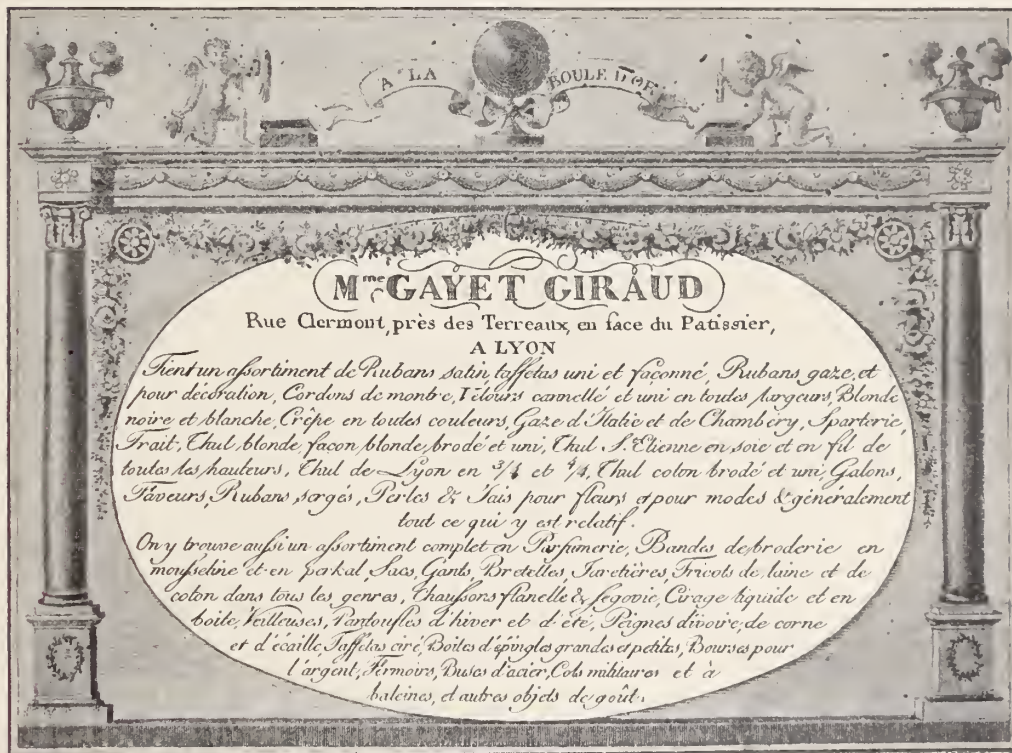 A LA BOULE D'OR
Mme GAYET GIRAUD
Rue Clermont, près des Terreaux, en face du Patissier,
A LYON
Tient un assortiment de Rubans satin, taffetas uni et façonné, Rubans gaze, et
pour décoration, Cordons de montre, Vélours cannellé et uni en toutes largeurs, Blonde
noire et blanche, Crêpe en toutes couleurs, Gaze d'Italie et de Chambéry, Sparterie,
Trait, Thul blonde, façon blonde brodé et uni, Thul St. Etienne en soie et en fil de
toutes les hauteurs, Thul de Lyon en 3/4 et 4/4, Thul coton brodé et uni, Galons,
Faveurs, Rubans sergés, Perles & Jais pour fleurs et pour modes & généralement
tout ce qui y est relatif.
On y trouve aussi un assortiment complet en Parfumerie, Bandes de broderie en
mousseline et en perkal, Sacs, Gants, Bretelles, Jaretières, Tricots de laine et de
coton dans tous les genres, Chaussons flanelle & ségovie, Cirage liquide et en
boite, Veilleuses, Pantoufles d'hiver et d'été, Peignes d'ivoire, de corne
et d'écaille, Taffetas ciré, Boites d'épingles grandes et petites, Bourses pour
l'argent, Fermoirs, Buses d'acier, Cols militaires et à
baleines, et autres objets de goût.